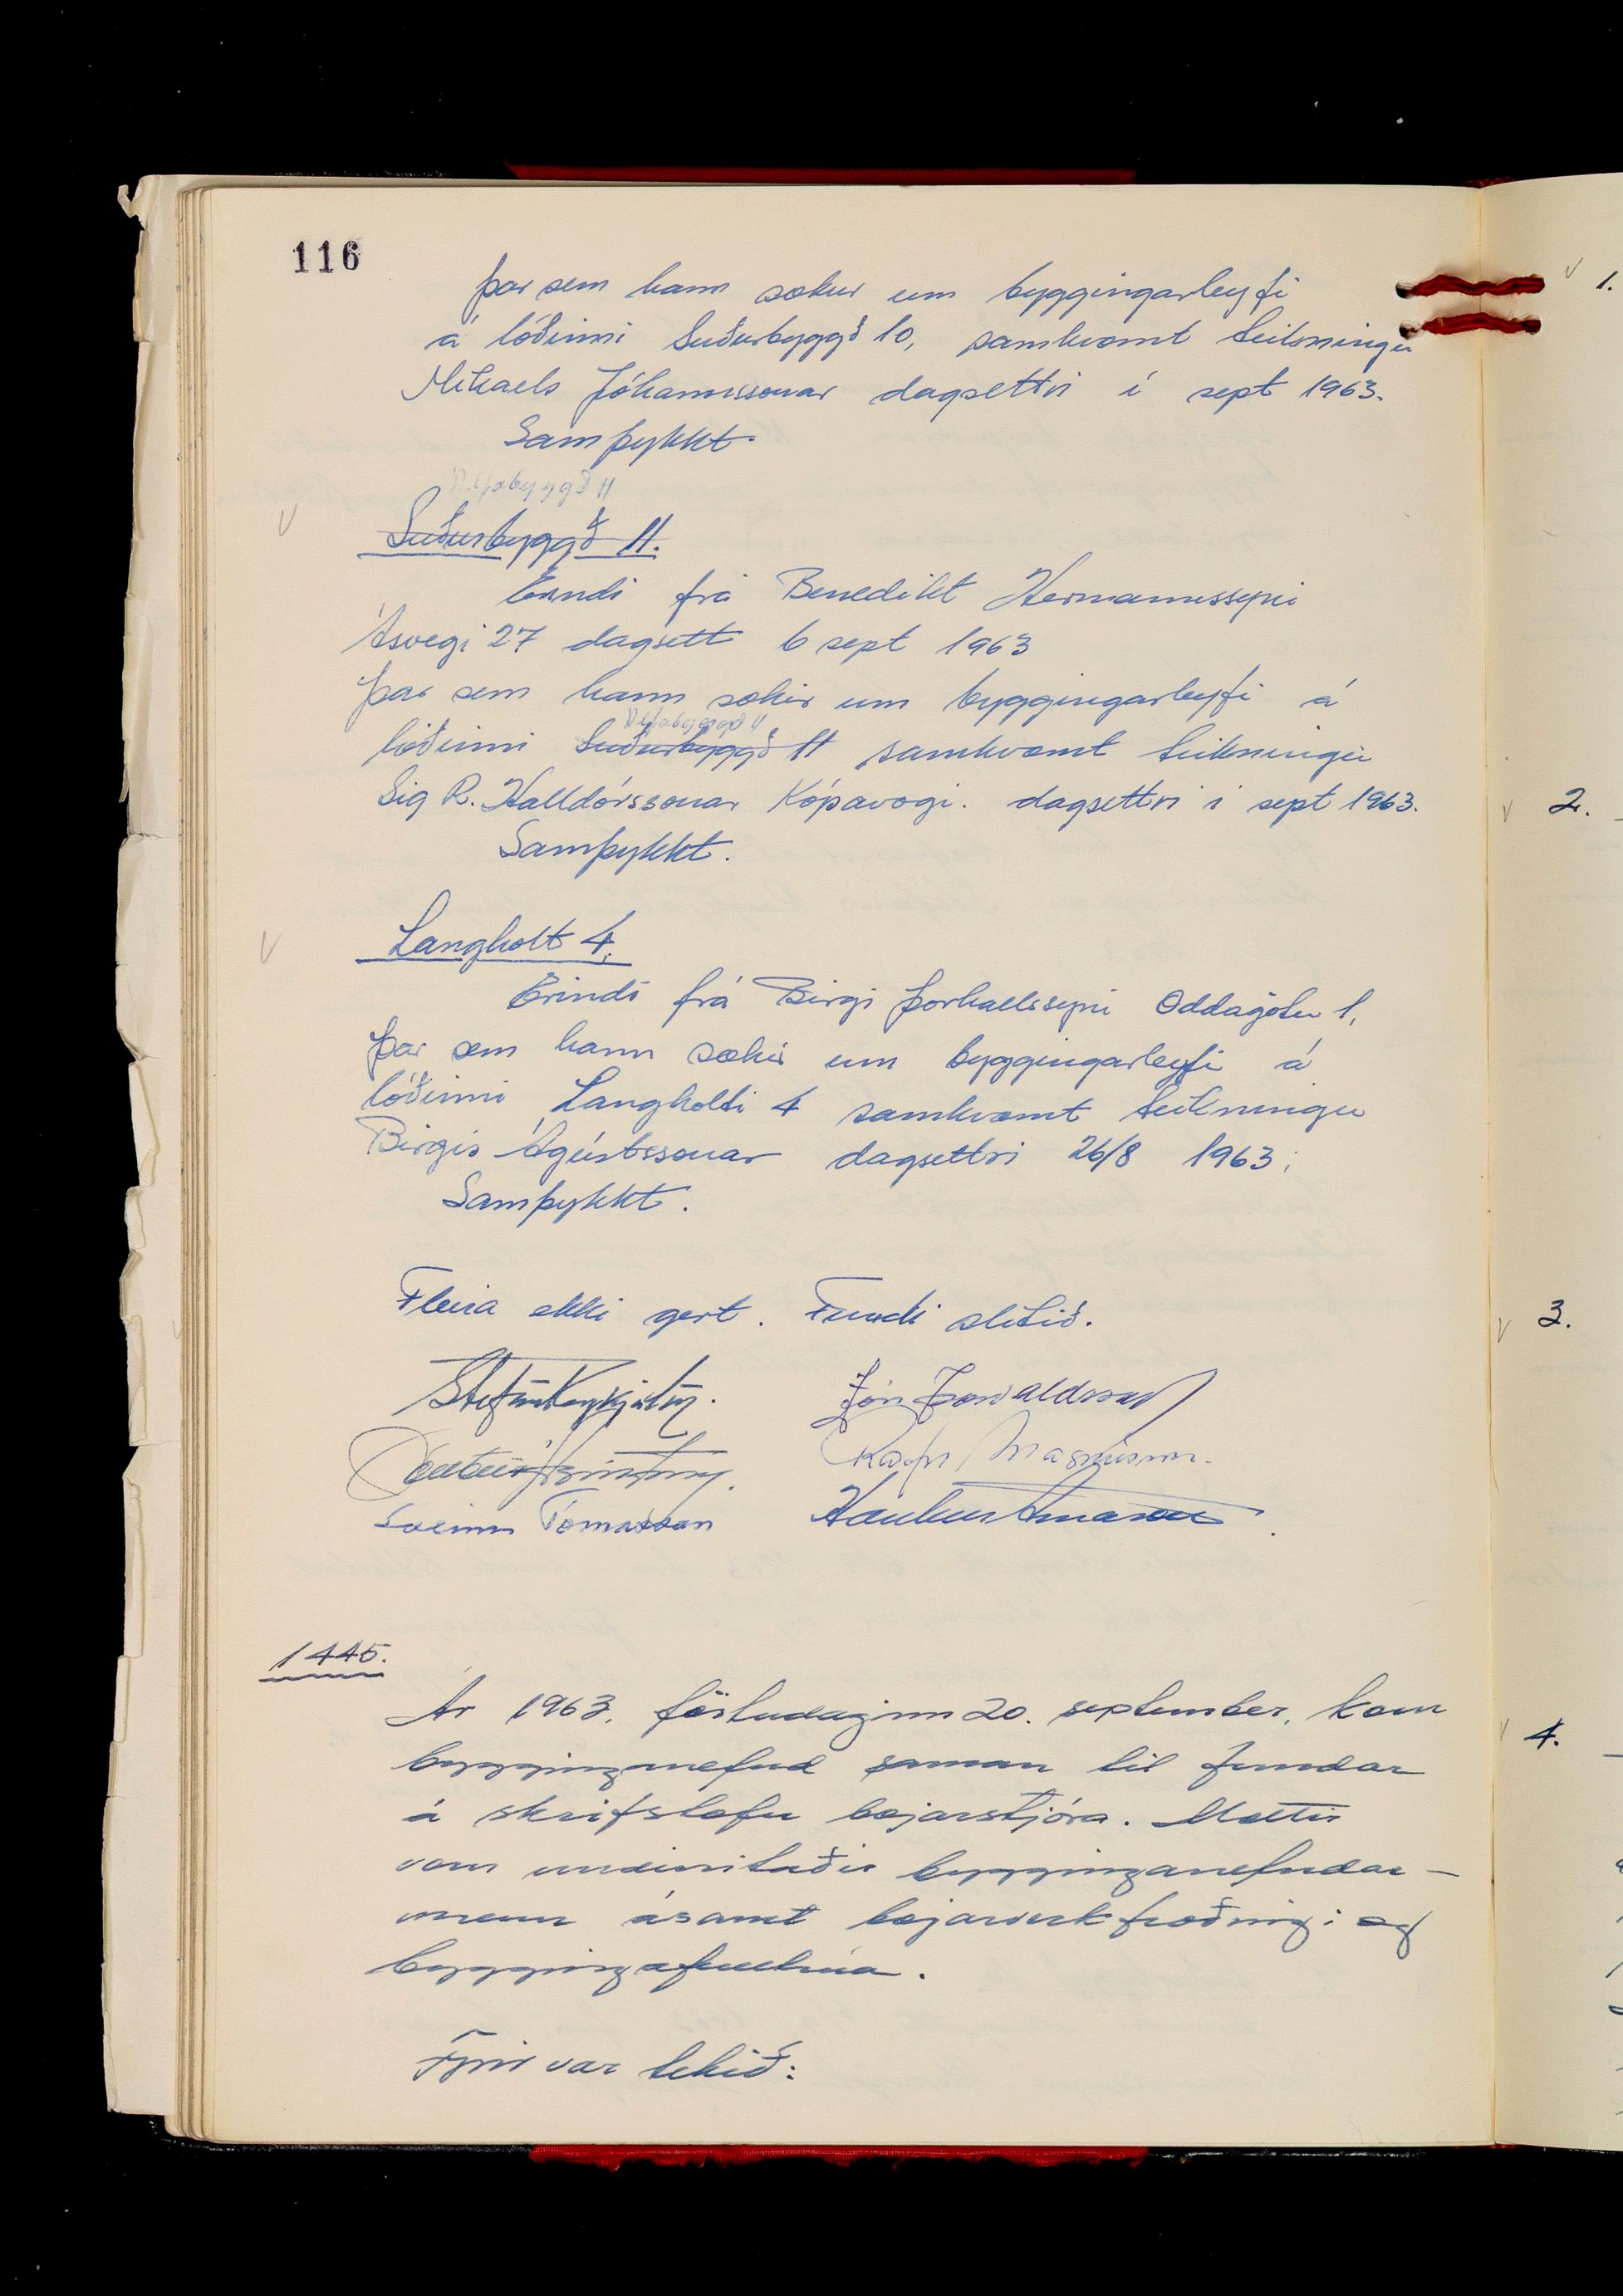 116
þar sem hann sækur um byggingarleyfi
á lóðinni Suðurbyggð 10, samkvæmt teikningu
Mikaels Jóhannssonar dagsettri í sept 1963.
Samþykkt.
Suðurbyggð 11.
Erindi frá Benedikt Hermannssyni
Ásvegi 27 dagsett 6 sept 1963
þar sem hann sækir um byggingarleyfi á
lóðinni Suðurbyggð 11 samkvæmt teikningu
Sig R. Halldórssonar Kópavogi. dagsettri í sept 1963.
Samþykkt.
Langholt 4.
Erindi frá Birgi Þorhallssyni Oddagötu 1,
þar sem hann sækir um byggingarleyfi á
lóðinni Langholti 4 samkvæmt teikningu
Birgis Ágústssonar dagsettri 26/8 1963;
Samþykkt.
Fleira ekki gert. Fundi slitið.
Stefán Reykjalín. Jón Þorvaldsson
Magnússon.
Sveinn Tómasson Haukur Árnason
1445.
Ár 1963, föstudaginn 20. september, kom
bygginganefnd saman til fundar
á skrifstofu bæjarstjóra. Mættir
voru undirritaðir bygginganefndar-
menn ásamt bæjarverkfræðingi og
byggingafulltrúa.
Fyrir var tekið:
1.
2.
3.
4.